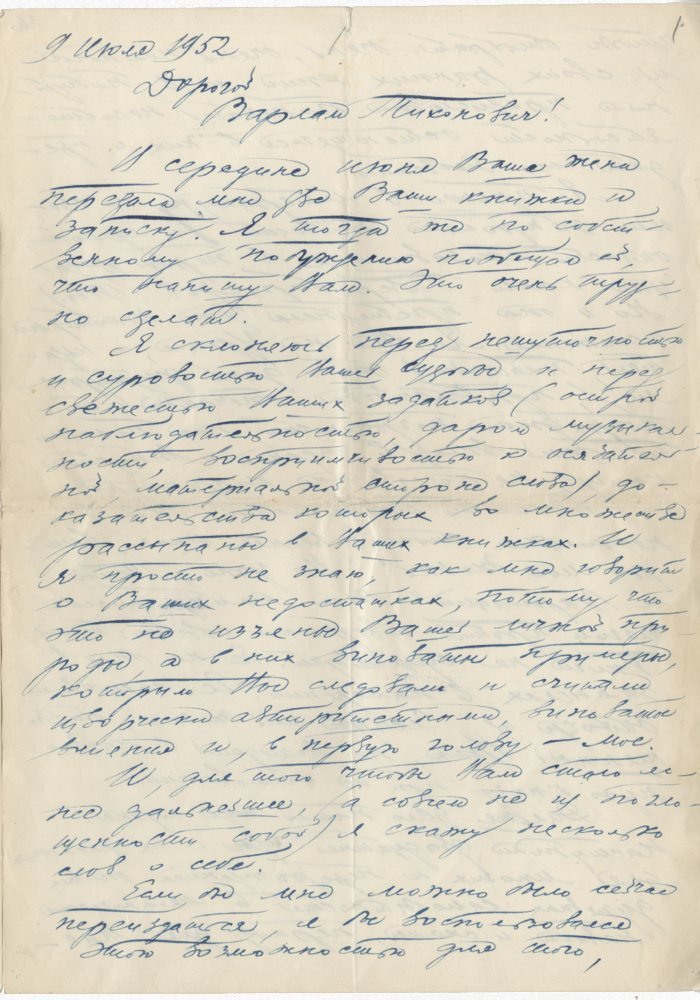 9 июля 1952
Дорогой
Варлам Тихонович!
В середине июня Ваша жена
передала мне две Ваши книжки и
записку. Я тогда же по собст-
венному побуждению пообещал ей,
что напишу Вам. Это очень труд-
но сделать.
Я склоняюсь перед нешуточностью
и суровостью Вашей судьбы и перед
свежестью Ваших задатков (острой
наблюдательностью, даром музыкаль-
ности, восприимчивостью к осязатель-
ной, материальной стороне слова), до-
казательства которых во множестве
рассыпаны в Ваших книжках. И
я просто не знаю, как мне говорить
о Ваших недостатках, потому что
это не изъяны Вашей личной при
роды, а в них виноваты примеры,
которым Вы следовали и считали
творчески авторитетными, виноваты
влияния и, в первую голову – мое.
И, для того чтобы Вам стало яс-
нее дальнейшее, (а совсем не из погло-
щенности собой) я скажу несколько
слов о себе.
Если бы мне можно было сейчас
переиздаться, я бы воспользовался
этою возможностью для того,